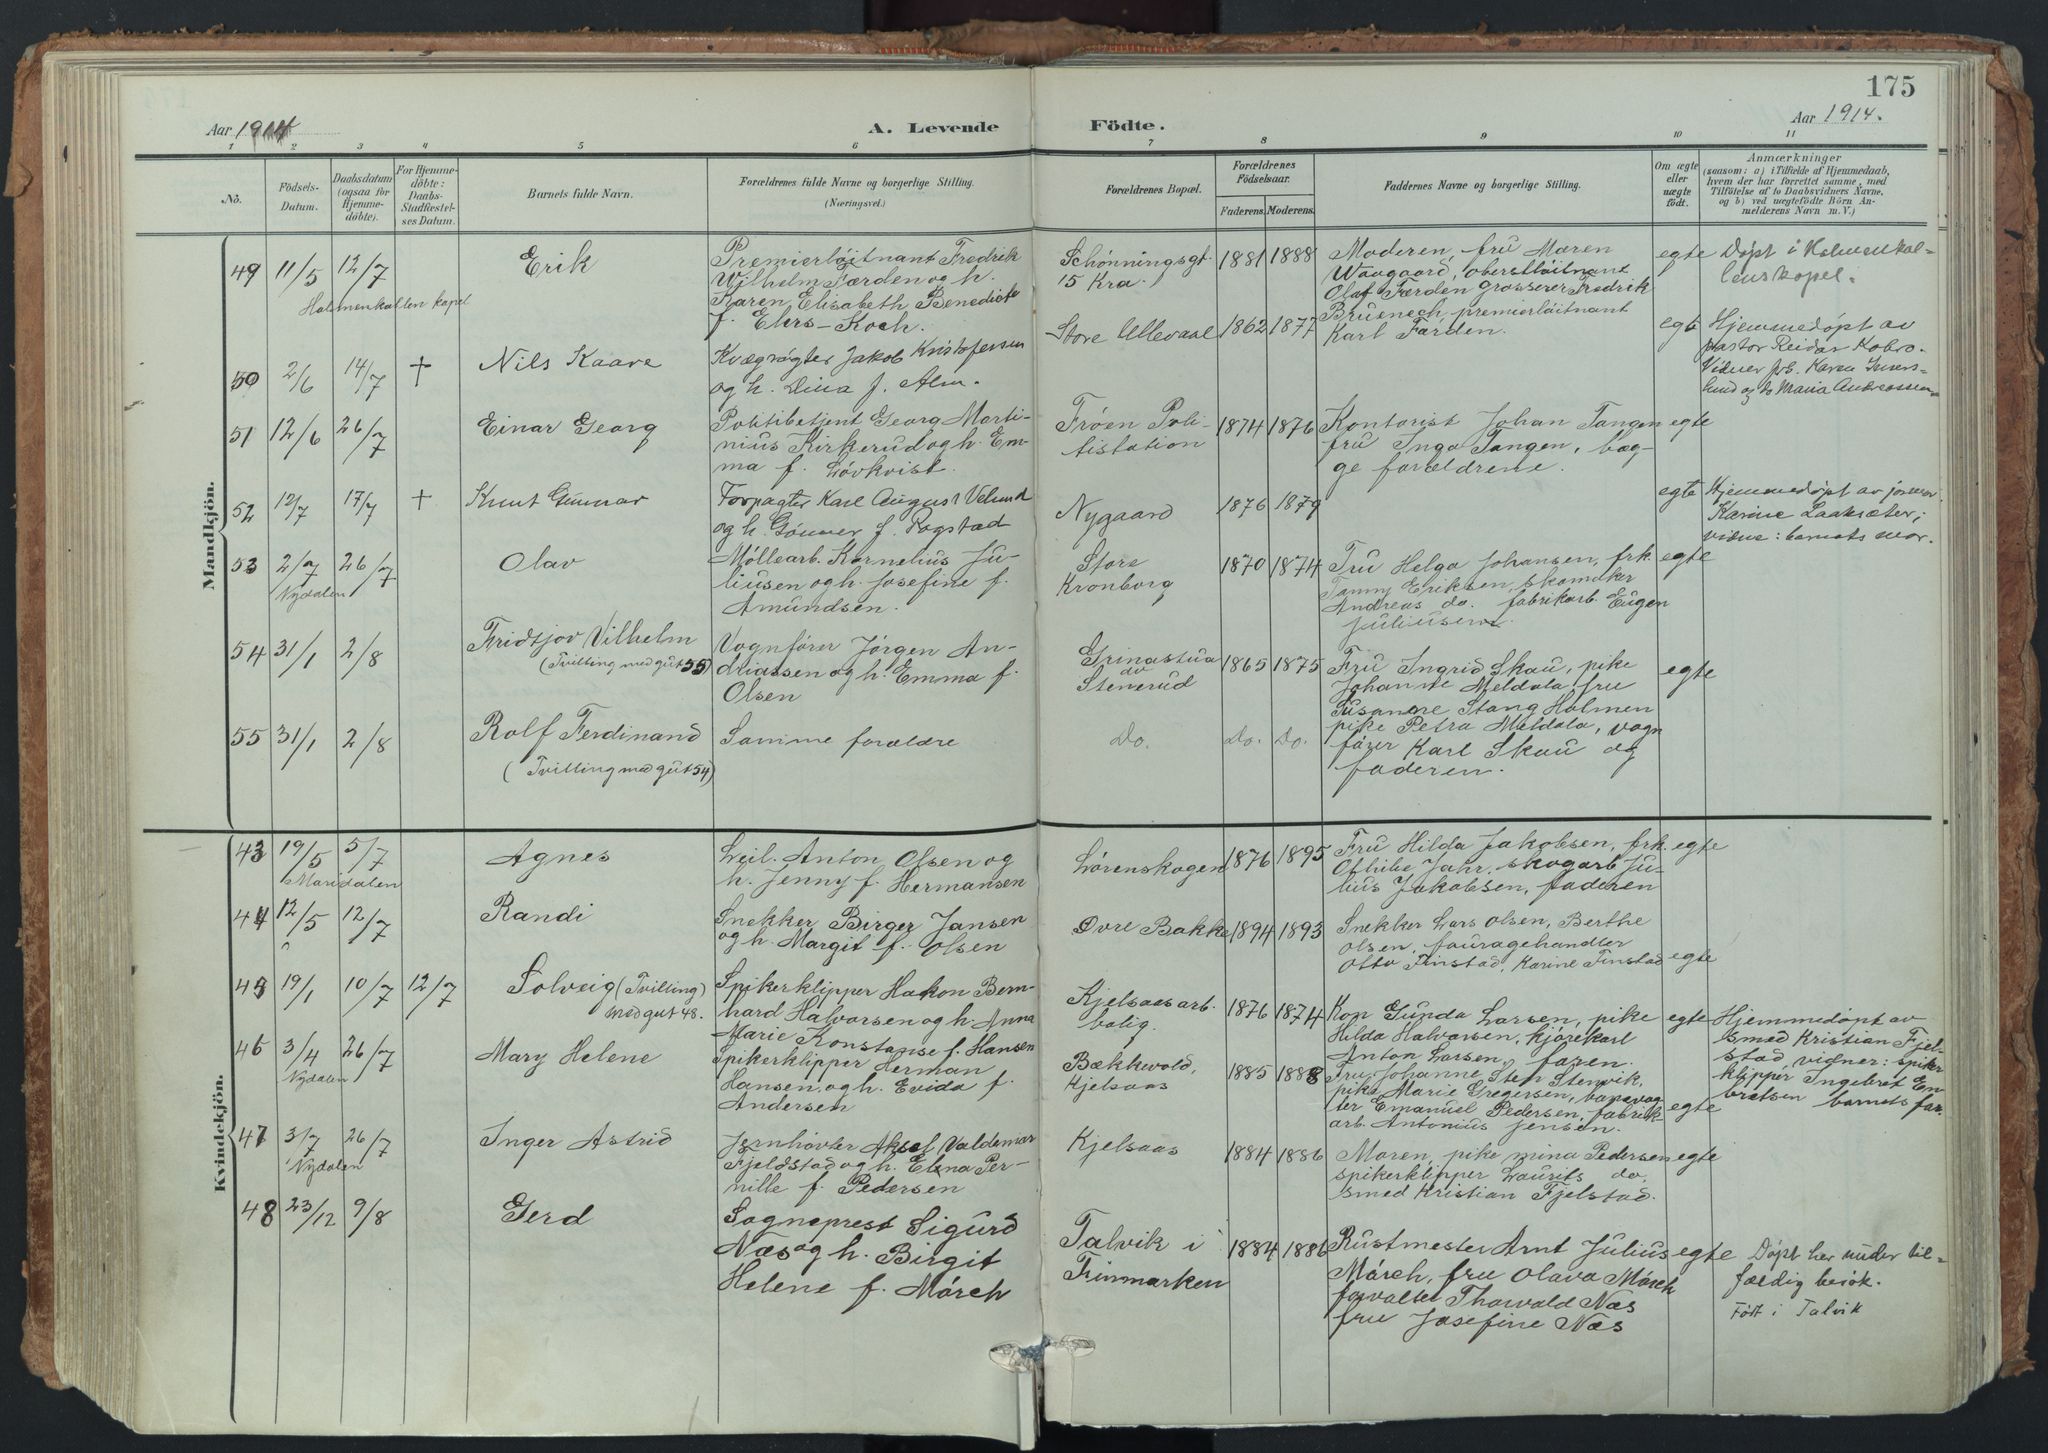 175
Aar 1914
A. Levende
Födte.
Aar 1914.
1 2 3 4 5 6 7 8 9 10 11
No.
Födsels-
Datum.
Daabsdatum
(ogsaa for
Hjemme-
döbte).
For Hjemme-
döbte:
Daabs-
Stadfæstel-
ses Datum.
Barnets fulde Navn.
Forældrenes fulde Navne og borgerlige Stilling.
(Næringsvei.)
Forældrenes Bopæl.
Forældrenes
Födselsaar.
Faderens. Moderens.
Faddernes Navne og borgerlige Stilling.
Om ægte
eller
uægte
födt.
Anmærkninger
(saasom: a) i Tilfælde af Hjemmedaab,
hvem der har forrettet samme, med
Tilföielse af to Daabsvidners Navne,
og b) ved uægtefödte Börn An-
melderens Navn m. V.)
Mandkjön.
49 11/5 12/7
Holmenkollen kapel
Erik
Premierløitnant Fredrik
Wilhelm Færden og h.
Karen Elisabeth Benedicte
f. Ehrs-Koch.
Schønningsgt.
15 Kra.
1881 1888
Moderen, fru Maren
Waagaard, oberstløitnant
Olaf Færden grosserer Fredrik
Bruenech, premierløitnant
Karl Færden.
egte
Døpt i Holmenkol-
lenskapel.
50 2/6 14/7 +
Nils Kaare
Kvægrøgter Jakob Kristofersen
og h. Dina f. Alm.
Store Ullevaal
1862 1877
egte
Hjemmedøpt av
pastor Reidar Kobro.
Vidner frk. Karen Iners-
lund og do Maria Andreassen
51 12/6 26/7
Einar Georg
Politibetjent Georg Marti-
nius Kirkerud og h. Em-
ma f. Løvkvist.
Frøen Poli-
tistation
1874 1876
Kontorist Johan Tangen
fru Inga Tangen, beg-
ge forældrene.
egte
52 12/7 17/7 +
Knut Gunnar
Forpagter Karl August Velund
og h. Gunver f. Rogstad
Nygaard
1876 1879
egte
Hjemmedøpt av jormor
Karine Laaksæter;
vidne: barnets mor.
53 2/7 26/7
Nydalen
Olav
Møllearb. Kornelius Ju-
liusen og h. Josefine f.
Amundsen.
Store
Kronborg
1870 1874
Fru Helga Johansen, frk.
Fanny Eriksen, skomaker
Andreas do. fabrikarb. Eugen
Juliusen
egte
54 31/1 2/8
Fridtjov Vilhelm
(Tvilling med gut 55)
Vognfører Jørgen An-
driassen og h. Emma f.
Olsen
Grinastua
av
Stenerud
1865 1875
Fru Ingrid Skau, pike
Johanne Meldala, fru
Susanne Stang Holmen
pike Petra Meldala, vogn
fører Karl Skau og
faderen.
egte
55 31/1 2/8
Rolf Ferdinand
(Tvilling med gut 54)
Samme forældre
Do. Do. Do.
Kvindekjön.
43 19/5 5/7
Maridalen
Agnes
Leil. Anton Olsen og
h. Jenny f. Hermansen
Lørenskogen
1876 1895
Fru Hilda Jakobsen, frk.
Othilie Jahr, skogarb. Ju-
lius Jakobsen, faderen
egte
44 12/5 12/7
Randi
Snekker Birger Jansen
og h. Margit f. Olsen
Øvre Bakke
1894 1893
Snekker Lars Olsen, Berthe
Olsen, fouragehandler
Otto Finstad, Karine Finstad
egte
45 19/1 10/7 12/7
Solveig (Tvilling)
med gut 48.
Spikerklipper Hakon Bern-
hard Halvorsen og h. Anna
Marie Konstanse f. Hansen
Kjelsaas arb.
bolig.
1876 1874
Kon Gunda Larsen, pike
Hilda Halvorsen, kjørekarl
Anton Larsen, faren.
egte
Hjemmedøpt av
smed Kristian Fjel-
stad vidner: spiker
klipper Ingebret En-
bretsen barnets far.
46 3/4 26/7
Nydalen
Mary Helene
Spikerklipper Herman
Hansen, og h. Evida f.
Andersen
Bækkevold,
Kjelsaas
1885 1888
Fru Johanne Sten Stenvik,
pike Marie Gregersen,
Emanuel Pedersen, fabrik
arb. Antonius Jensen.
egte
47 3/7 26/7
Nydalen
Inger Astrid
Jernhøvler Aksel Valdemar
Fjeldstad og h. Elena Per-
nille f. Pedersen
Kjelsaas
1884 1886
Moren, pike Mina Pedersen
spikerklipper Laurits do.
smed Kristian Fjelstad.
egte
48 23/12 9/8
Gerd
Sogneprest Sigurd
Næs og h. Birgit
Helene f. Mørch
Talvik i
Finmarken
1884 1886
Rustmester Arnt Julius
Mørch, fru Olava Mørch
forvalter Thorvald Næs
fru Josefine Næs
egte
Døpt her under til-
fældig besøk.
Født i Talvik